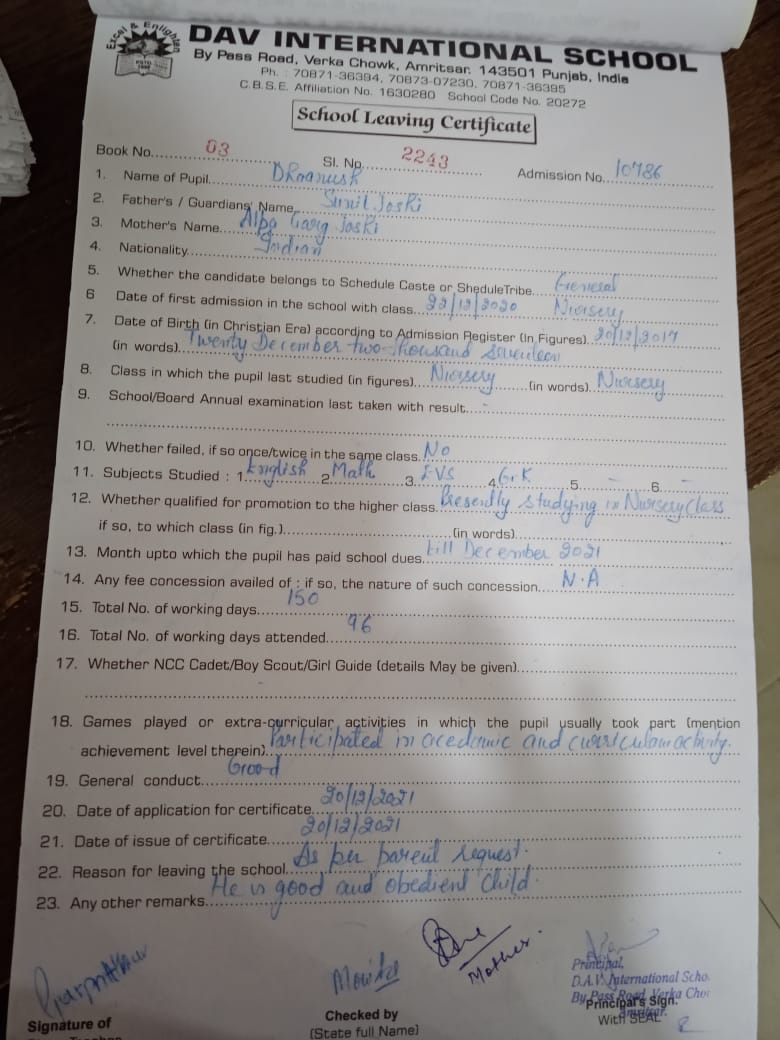 Excel & Enlighten
DAV INTERNATIONAL SCHOOL
By Pass Road, Verka Chowk, Amritsar. 143501 Punjab, India
Ph. : 70871-36394, 70873-07230, 70871-36395
C.B.S.E. Affiliation No. 1630280 School Code No. 20272
School Leaving Certificate
Book No. 03 Sl. No. 2243 Admission No. 10786
1. Name of Pupil. Dhanush
2. Father's / Guardians' Name. Sunil Joshi
3. Mother's Name. Alpa Garg Joshi
4. Nationality. Indian
5. Whether the candidate belongs to Schedule Caste or SheduleTribe. General
6 Date of first admission in the school with class. 22/12/2020 Nursery
7. Date of Birth (in Christian Era) according to Admission Register (In Figures). 20/12/2017
(in words). Twenty December two thousand seventeen
8. Class in which the pupil last studied (in figures). Nursery (in words). Nursery
9. School/Board Annual examination last taken with result. -
10. Whether failed, if so once/twice in the same class. No
11. Subjects Studied : 1. English 2. Math 3. EVS 4. G.K 5. - 6. -
12. Whether qualified for promotion to the higher class. Presently studying in Nursery Class
if so, to which class (in fig.). (in words).
13. Month upto which the pupil has paid school dues. till December 2021
14. Any fee concession availed of : if so, the nature of such concession. N.A
15. Total No. of working days. 150
16. Total No. of working days attended. 96
17. Whether NCC Cadet/Boy Scout/Girl Guide (details May be given).
18. Games played or extra-curricular activities in which the pupil usually took part (mention
achievement level therein). Participated in acedemic and curriculam activity.
19. General conduct. Good
20. Date of application for certificate. 20/12/2021
21. Date of issue of certificate. 20/12/2021
22. Reason for leaving the school. As per parent request.
23. Any other remarks. He is good and obedient child.
Mother.
Principal,
D.A.V. International Scho
By Pass Road, Verka Cho
Amritsar.
Principal's Sign.
With SEAL
Signature of
Checked by
(State full Name)